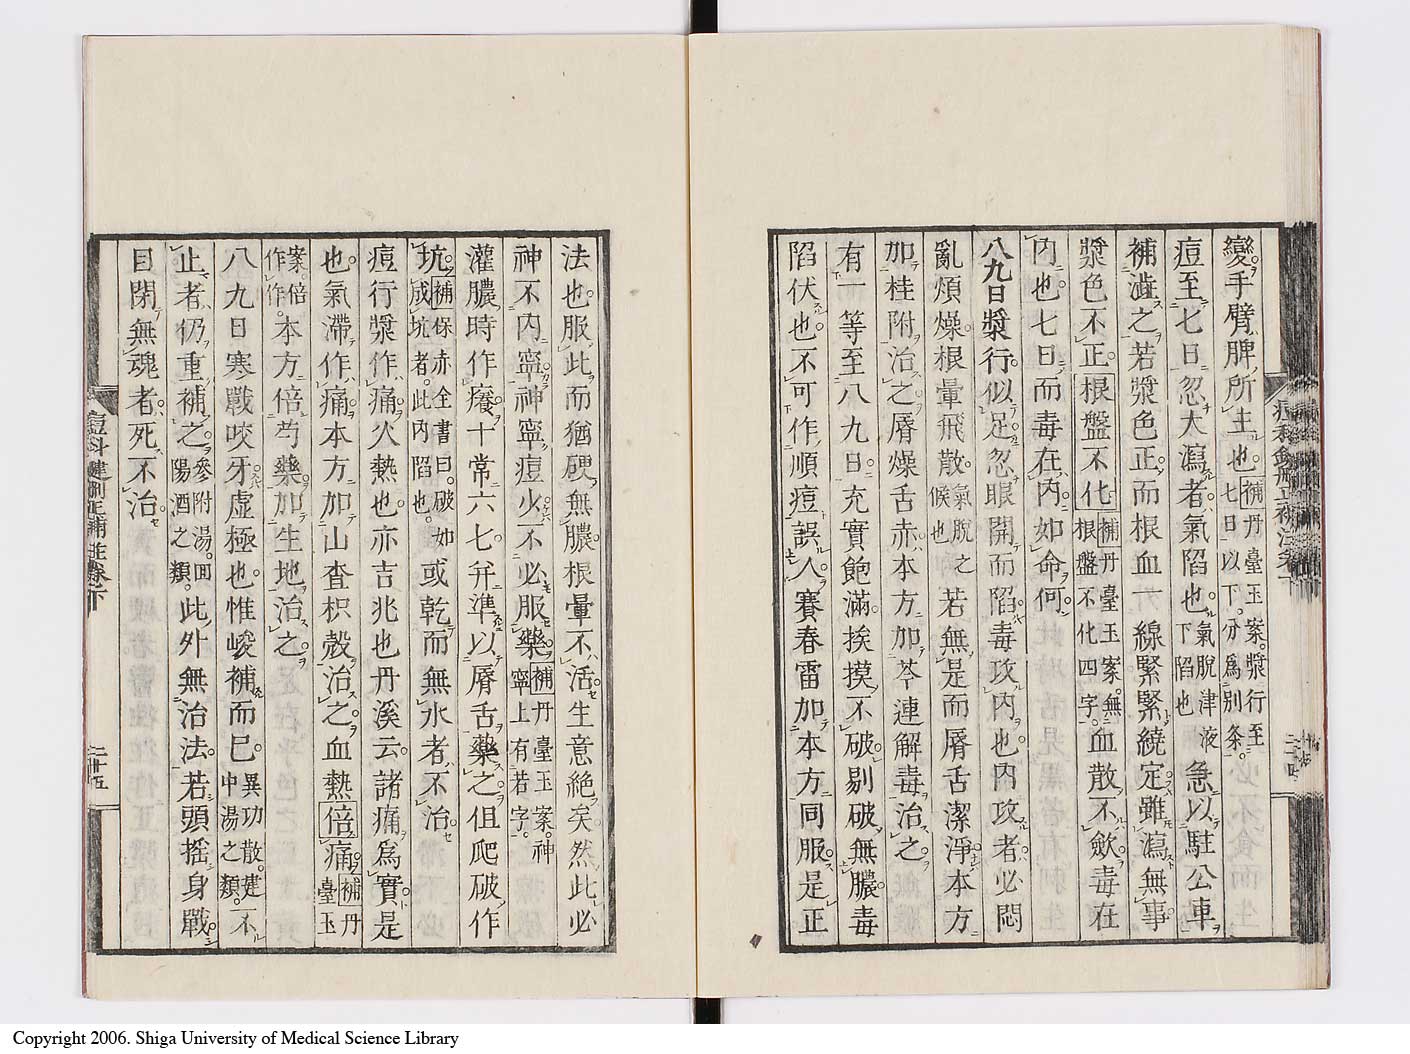 變手臂脾所主也補丹臺玉案漿行至七日以下分爲別條
痘至七日忽大瀉者氣陷也氣脫津液下陷也急以駐公車
補澁之若漿色正而根血一線緊緊繞定雖瀉無事
漿色不正根盤不化補丹臺玉案無根盤不化四字血散不歛毒在
內也七日而毒在內如命何
八九日漿行似足忽眼開而陷毒攻內也內攻者必悶
亂煩燥根暈飛散氣脫之候也若無是而脣舌潔淨本方
加桂附治之脣燥舌赤本方加芩連解毒治之
有一等至八九日充實飽滿挨摸不破剔破無膿毒
陷伏也不可作順痘誤人賽春雷加本方同服是正
法也服此而猶硬無膿根暈不活生意絶矣然此必
神不內寧神寧痘少不必服藥補丹臺玉案神寧上有若字
灌膿時作癢十常六七幷準以脣舌藥之但爬破作
坑補保赤全書曰破如成坑者此內陷也或乾而無水者不治
痘行漿作痛火熱也亦吉兆也丹溪云諸痛爲實是
也氣滯作痛本方加山査枳殼治之血熱倍痛補丹臺玉
案倍作作本方倍芍藥加生地治之
八九日寒戰咬牙虛極也惟峻補而已異功散建中湯之類不
止者仍重補之參附湯回陽酒之類此外無治法若頭搖身戰
目閉無魂者死不治
痘科鍵刪正補註卷下
二十五
Copyright 2006. Shiga University of Medical Science Library